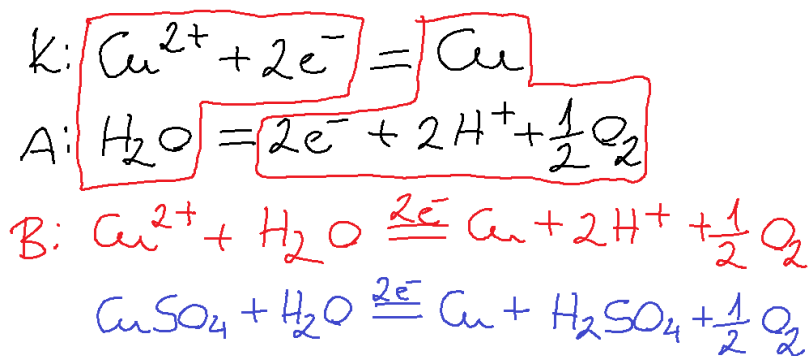 K: Cu²⁺ + 2e⁻ = Cu
A: H₂O = 2e⁻ + 2H⁺ + ½O₂
B: Cu²⁺ + H₂O =2e⁻= Cu + 2H⁺ + ½O₂
CuSO₄ + H₂O =2e⁻= Cu + H₂SO₄ + ½O₂